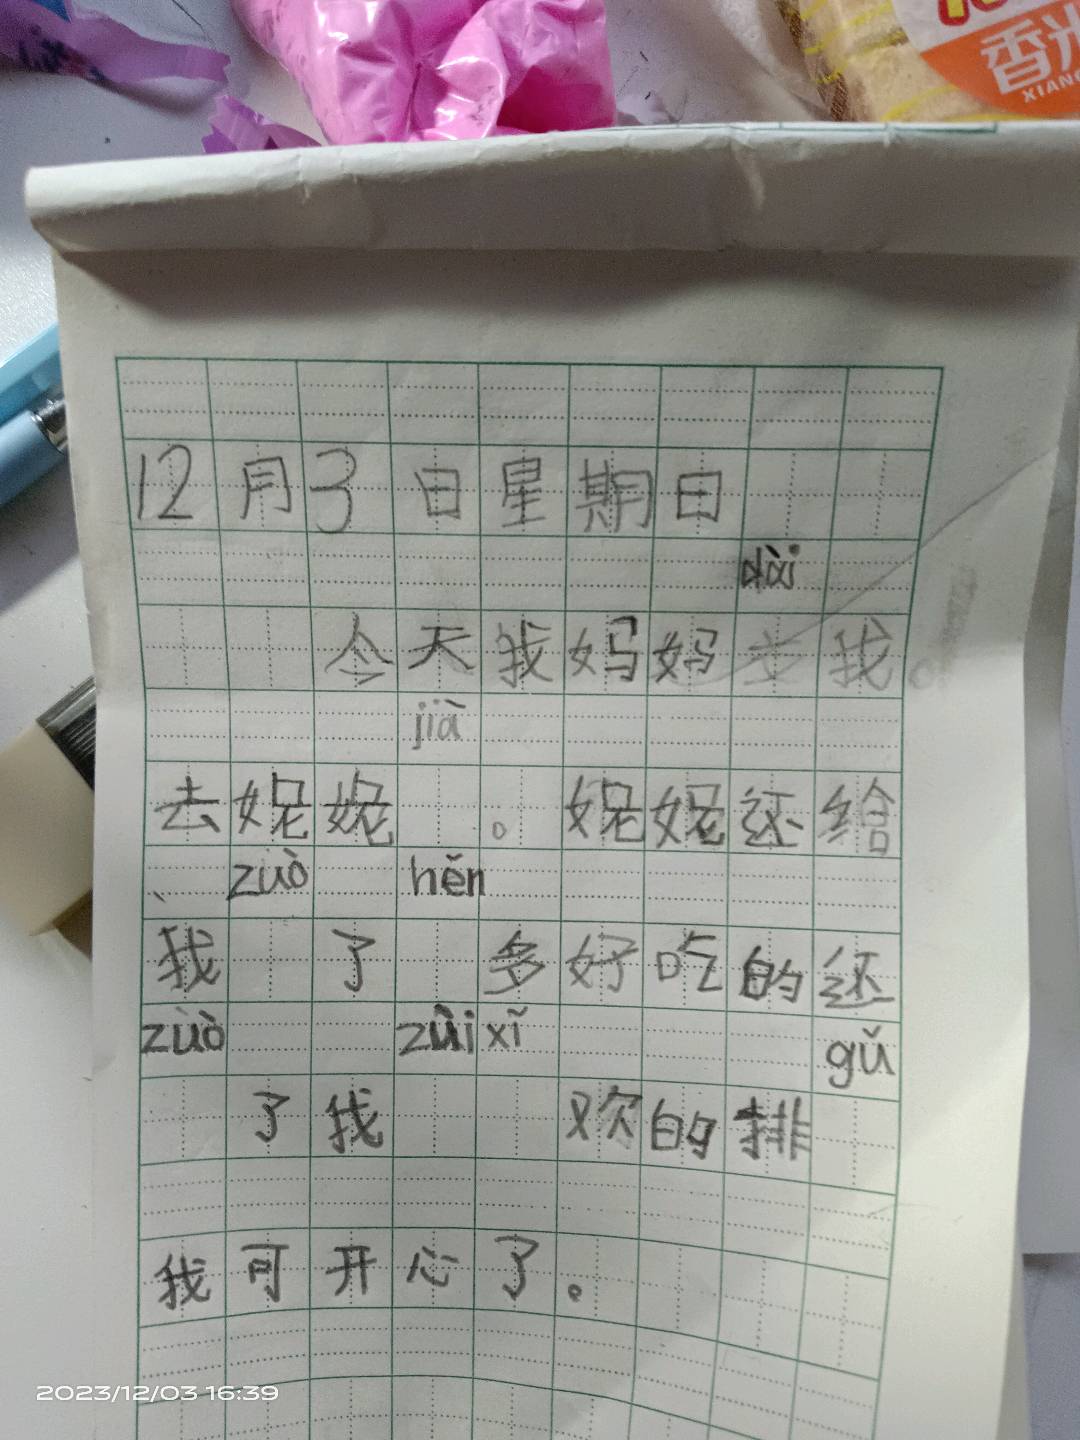 香米
XIANG
12月3日星期日
dài
今天我妈妈 我
jià
去妮妮 。妮妮还给
zuò hěn
我 了 多好吃的还
zuò zuì xǐ gǔ
了我 欢的排
我可开心了。
2023/12/03 16:39